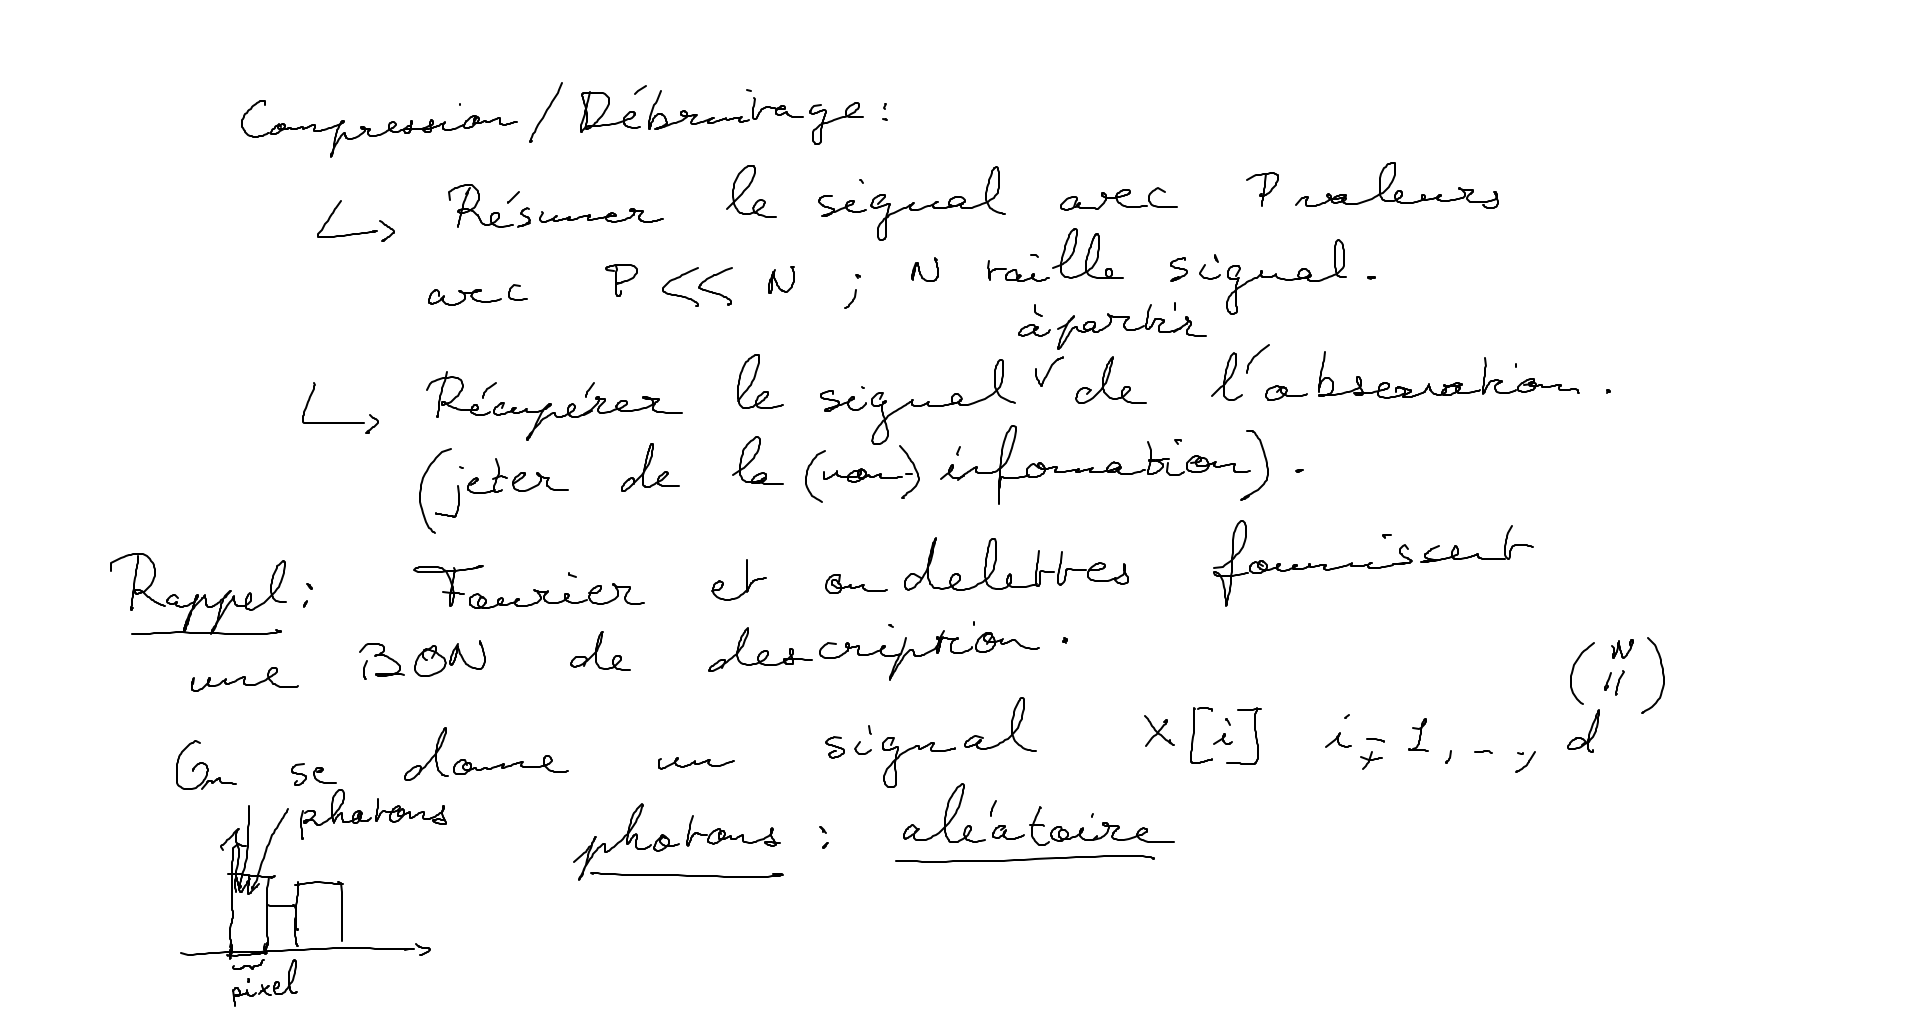 Compression/Débruitage:
↳ Résumer le signal avec P valeurs
avec P << N ; N taille signal.
à partir
↳ Récupérer le signal ∨ de l'observation.
(jeter de la (non-) information).
Rappel: Fourier et ondelettes fournissent
une BON de description.
(N
On se donne un signal X[i] i=1,..., d
photons
photons : aléatoire
pixel